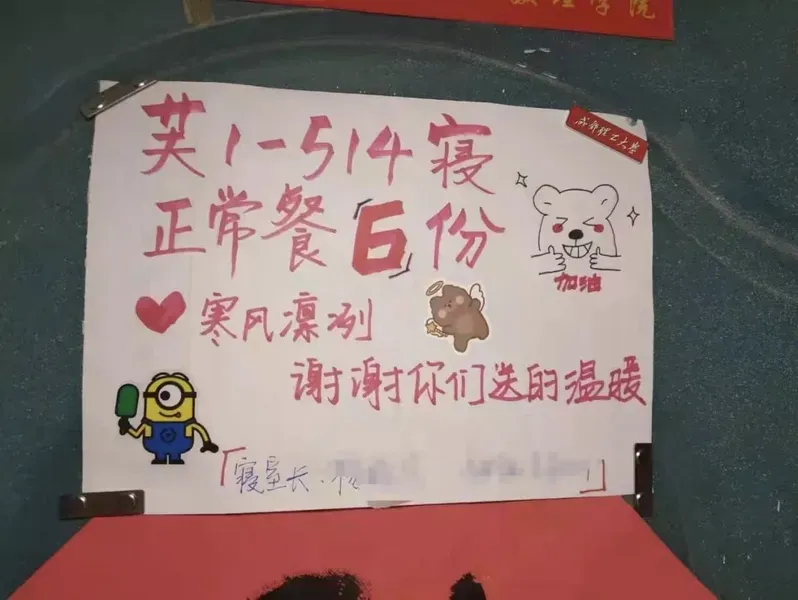 成都理工大学
芙1-514寝
正常餐「6」份
加油
寒风凛冽
谢谢你们送的温暖
「寝室长:
」